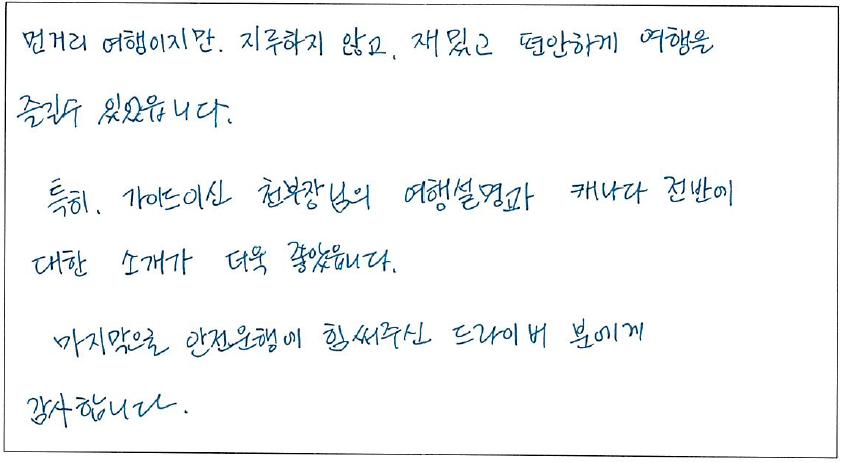 먼거리 여행이지만. 지루하지 않고, 재밌고 편안하게 여행을
즐길수 있었읍니다.
특히, 가이드이신 천부장님의 여행설명과 캐나다 전반에
대한 소개가 더욱 좋았읍니다.
마지막으로 안전운행에 힘써주신 드라이버 분에게
감사합니다.